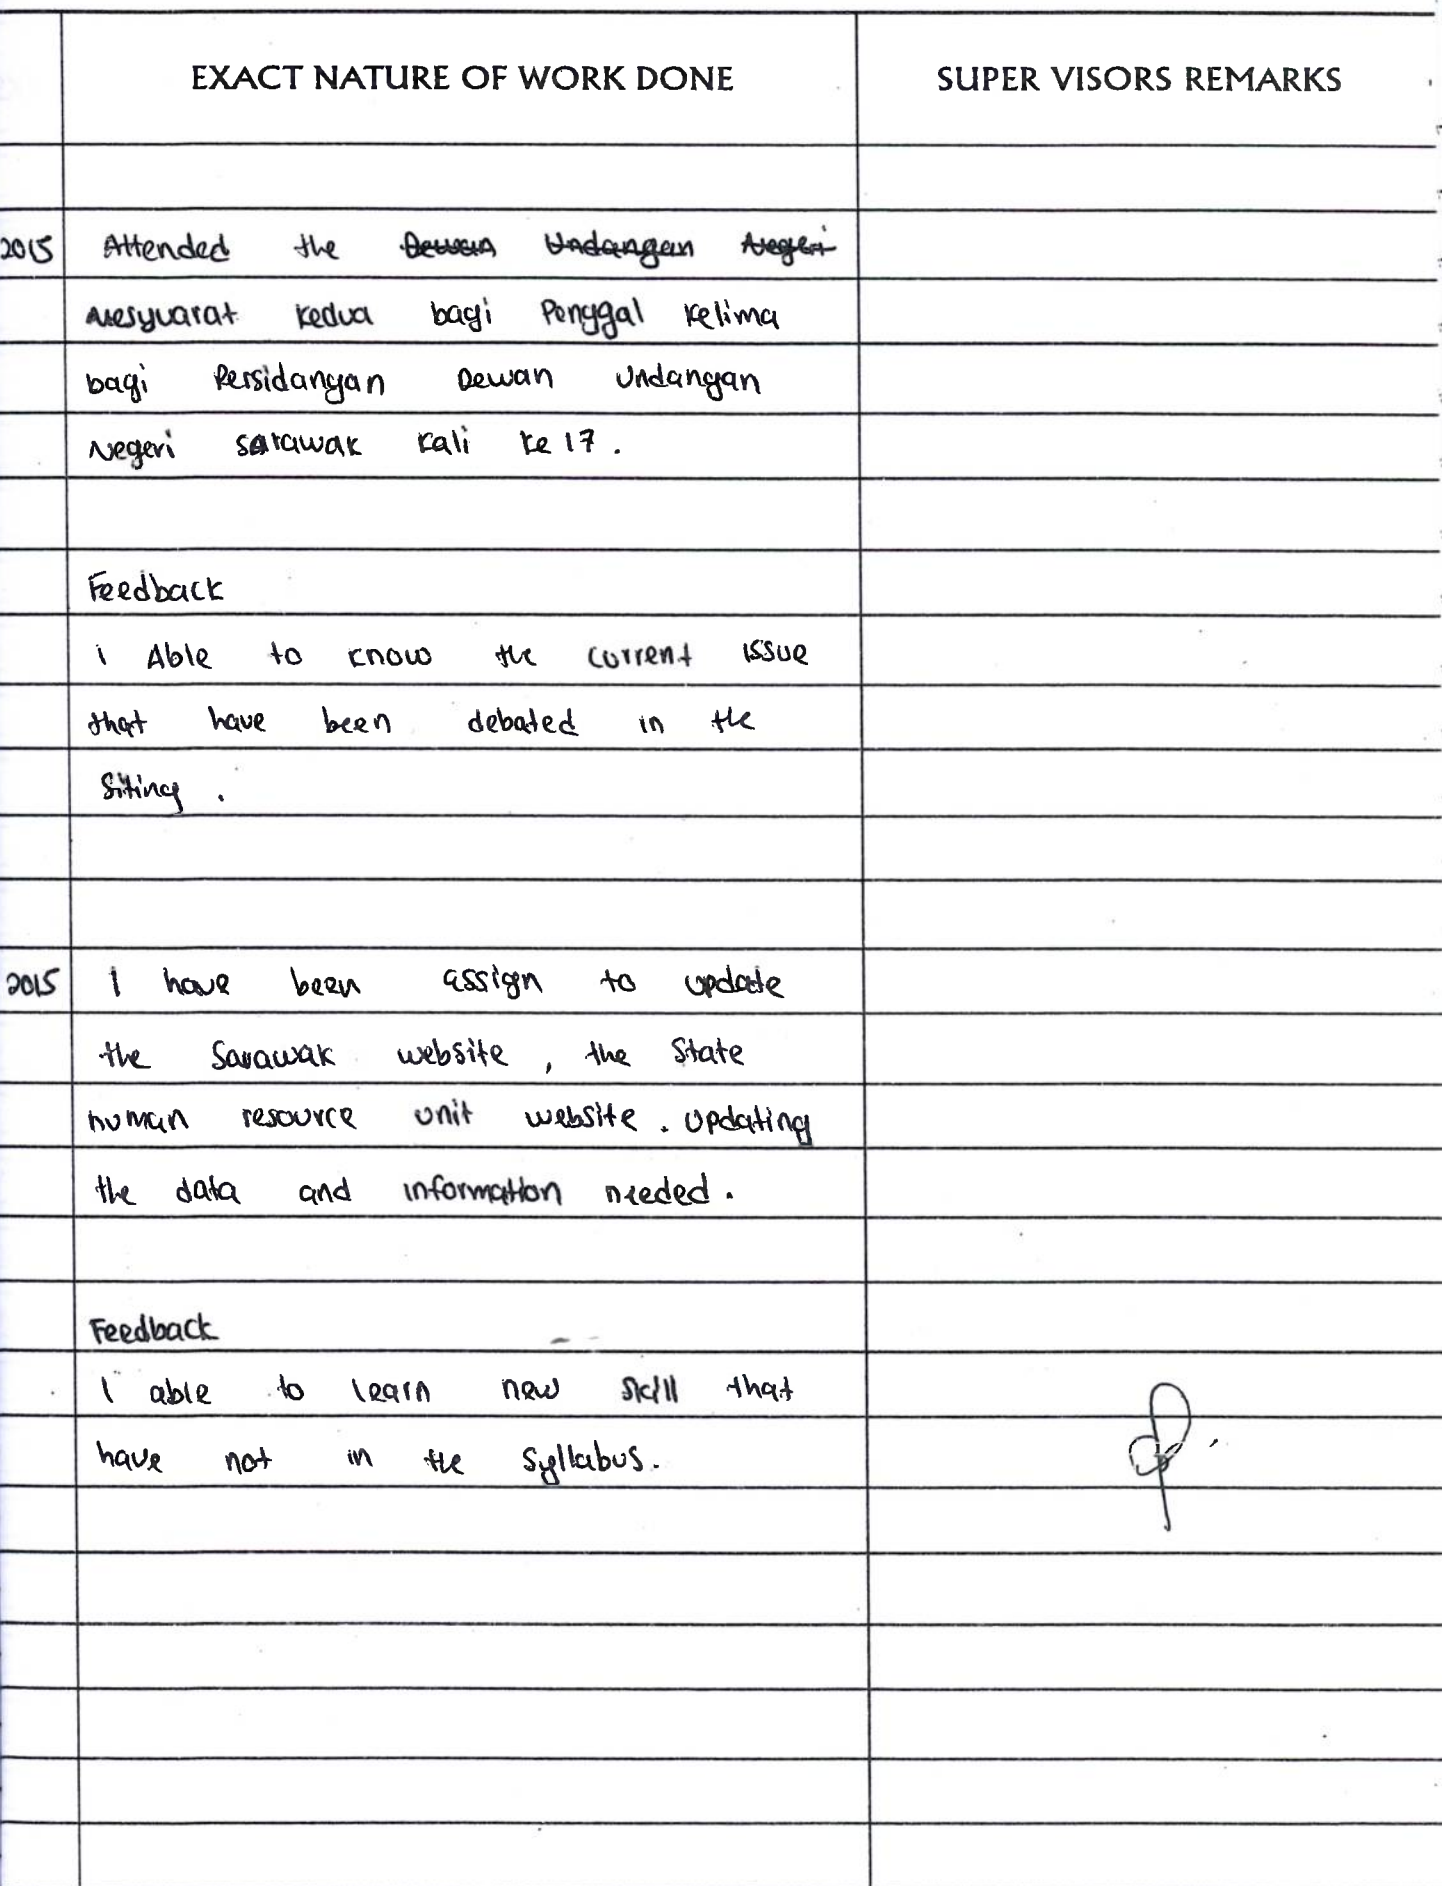 EXACT NATURE OF WORK DONE SUPER VISORS REMARKS
2015 Attended the Dewan Undangan Negeri
Mesyuarat kedua bagi Penggal Kelima
bagi Persidangan Dewan Undangan
Negeri Sarawak kali ke 17.
Feedback
i Able to know the current issue
that have been debated in the
Siting.
2015 I have been assign to update
the Sarawak website, the State
human resource unit website. Updating
the data and information needed.
Feedback
I able to learn new skill that
have not in the syllabus.